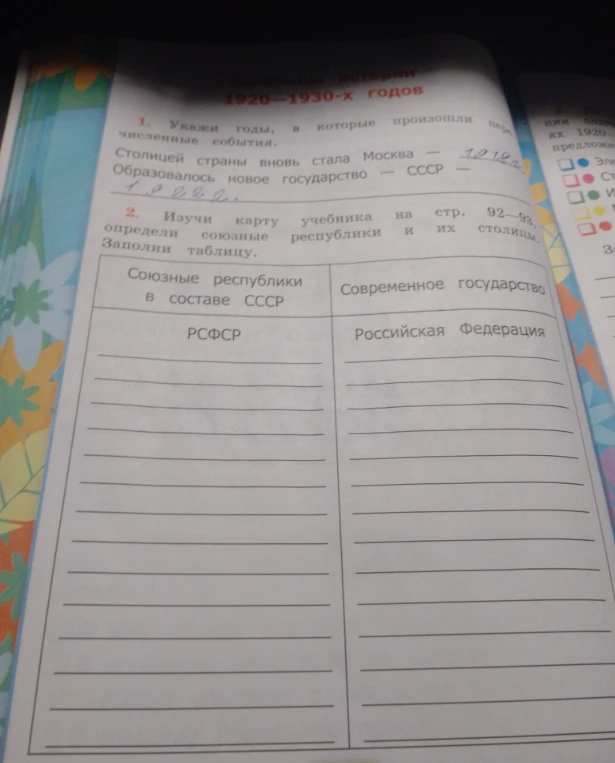 истории
1920—1930-х годов
1. Укажи годы, в которые произошли пере
численные события.
Столицей страны вновь стала Москва — 1918г.
Образовалось новое государство — СССР —
1922г.
2. Изучи карту учебника на стр. 92—93,
определи союзные республики и их столицы.
Заполни таблицу.
Союзные республики
в составе СССР
Современное государство
РСФСР
Российская Федерация
их 1920
предложе
Эл
Ст
И
З